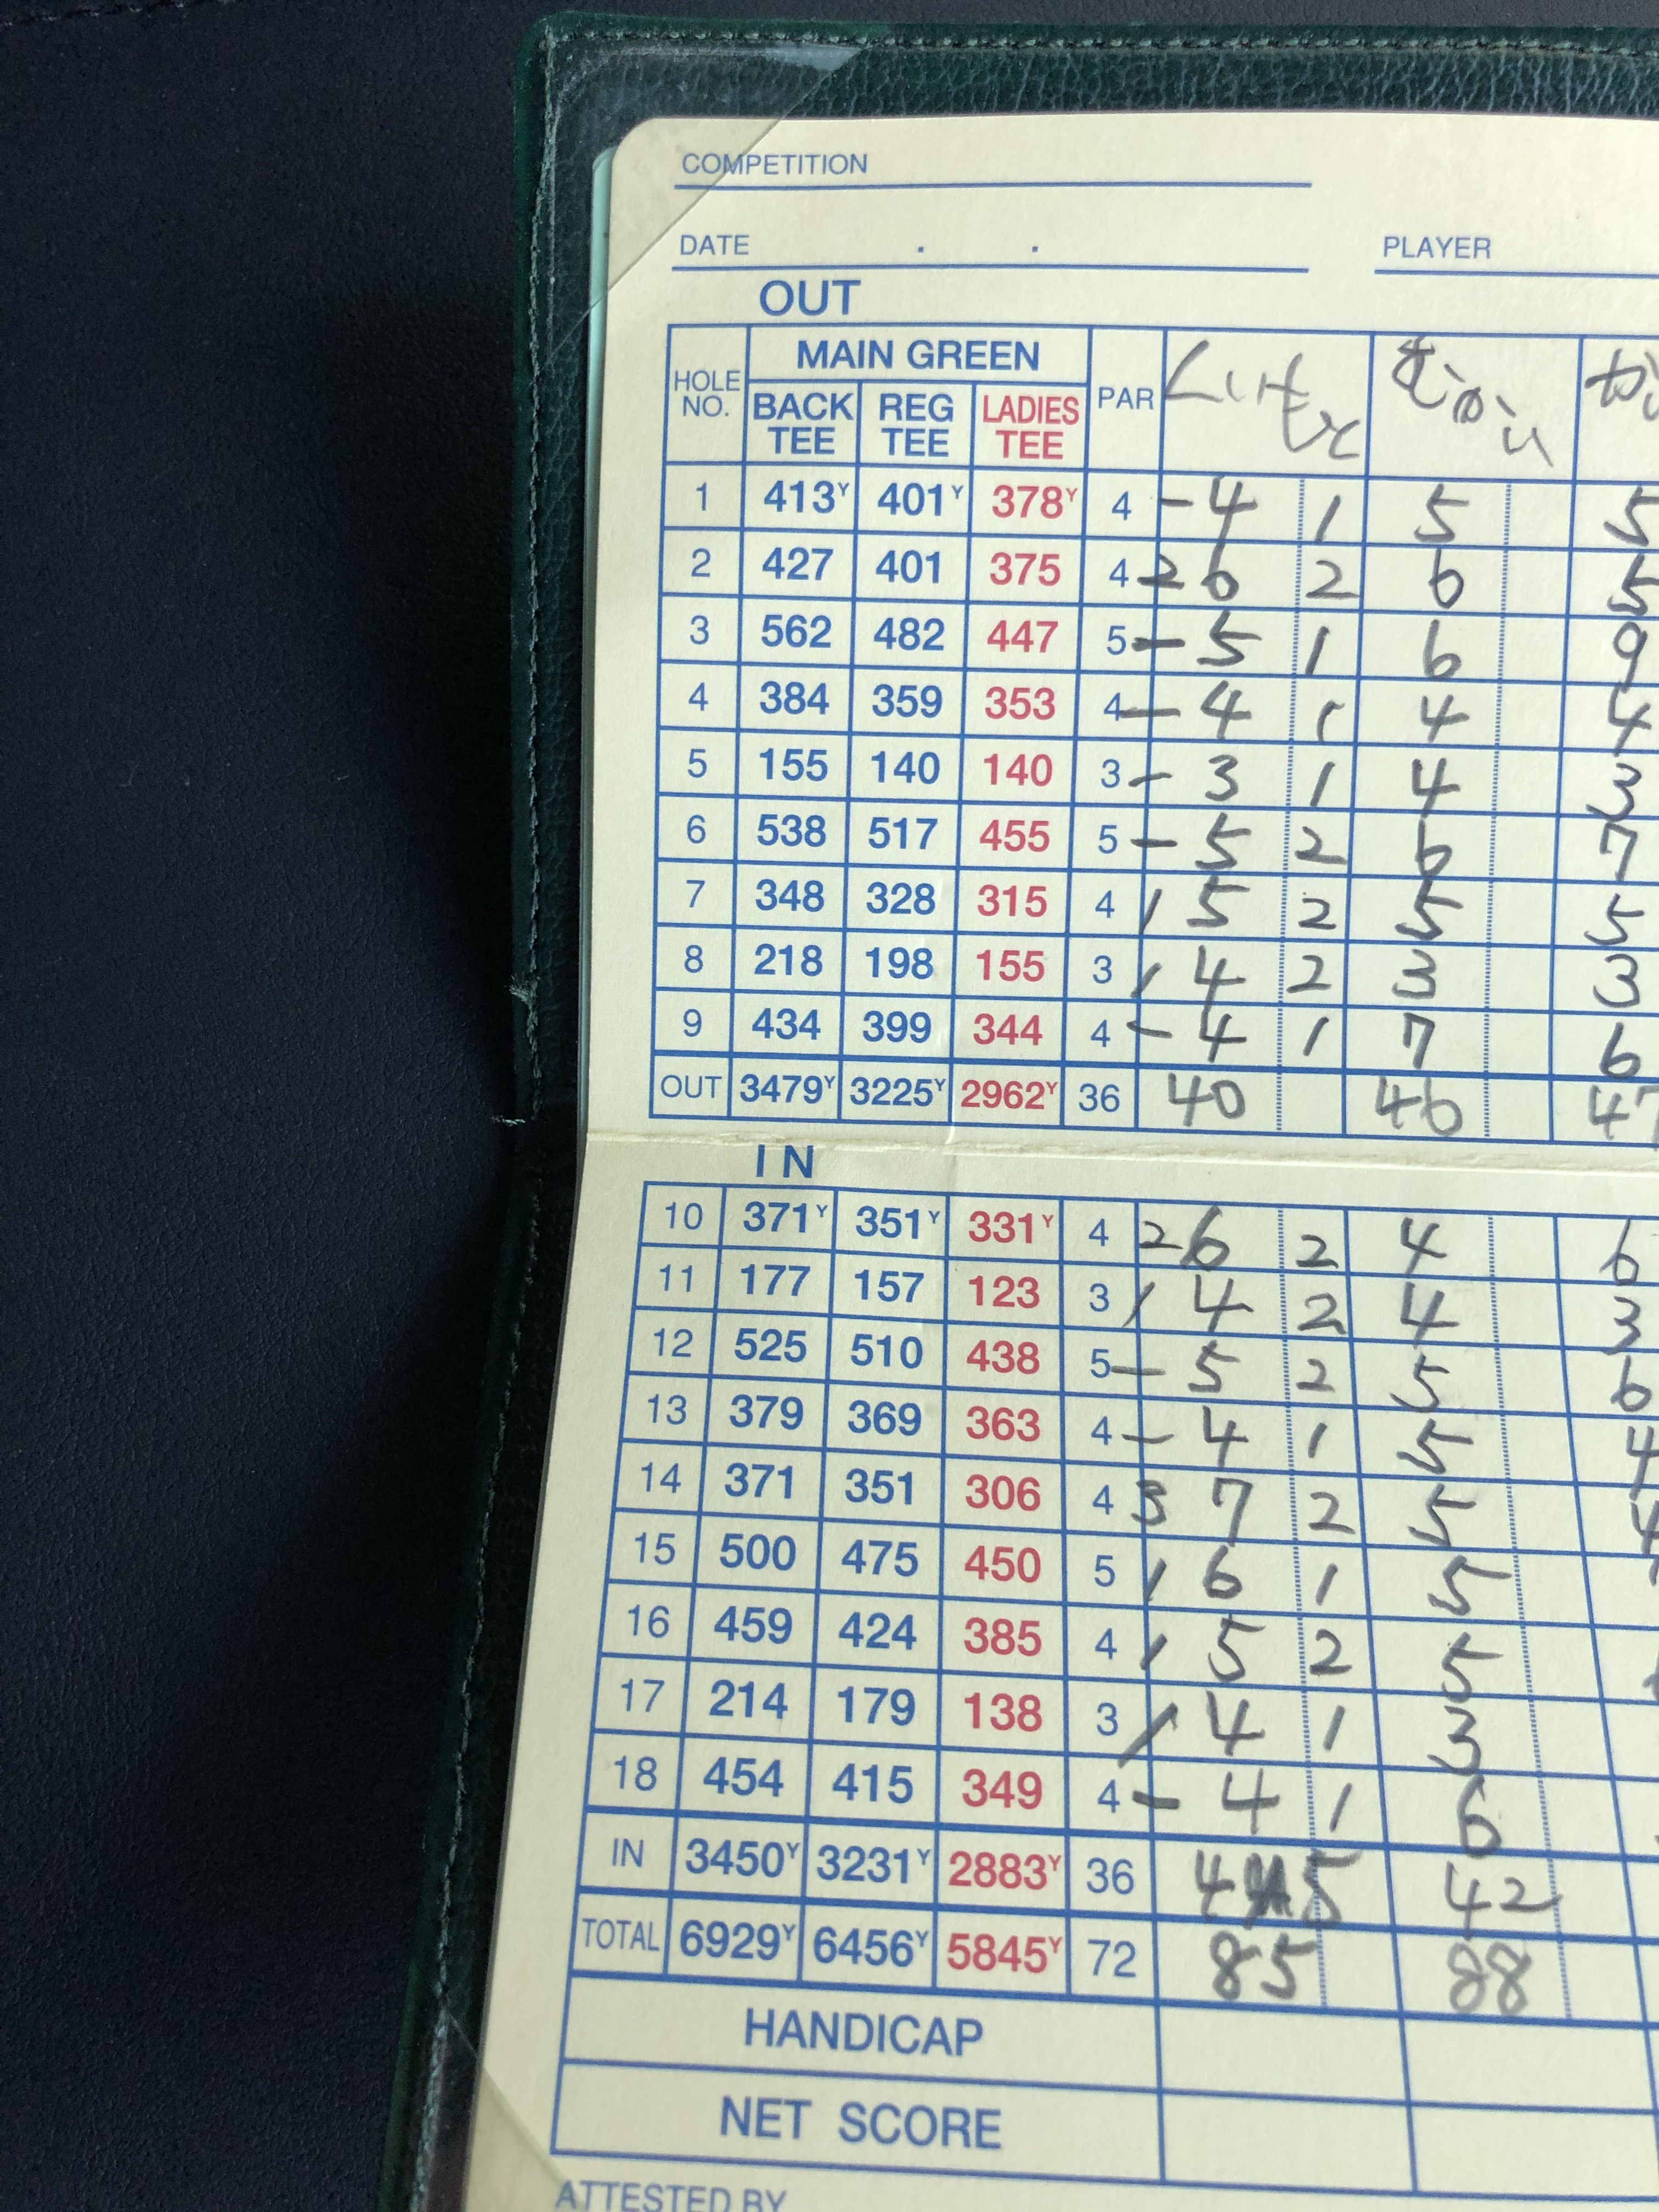 COMPETITION
DATE . . PLAYER
OUT
HOLE NO. MAIN GREEN PAR
BACK TEE REG TEE LADIES TEE
1 413Y 401Y 378Y 4 - 4 1 5 5
2 427 401 375 4 2 6 2 6 5
3 562 482 447 5 - 5 1 6 9
4 384 359 353 4 - 4 1 4 4
5 155 140 140 3 - 3 1 4 3
6 538 517 455 5 - 5 2 6 7
7 348 328 315 4 1 5 2 5 5
8 218 198 155 3 1 4 2 3 3
9 434 399 344 4 - 4 1 7 6
OUT 3479Y 3225Y 2962Y 36 40 46 47
IN
10 371Y 351Y 331Y 4 2 6 2 4 6
11 177 157 123 3 1 4 2 4 3
12 525 510 438 5 - 5 2 5 6
13 379 369 363 4 - 4 1 5 4
14 371 351 306 4 3 7 2 5 4
15 500 475 450 5 1 6 1 5
16 459 424 385 4 1 5 2 5
17 214 179 138 3 1 4 1 3
18 454 415 349 4 - 4 1 6
IN 3450Y 3231Y 2883Y 36 45 42
TOTAL 6929Y 6456Y 5845Y 72 85 88
HANDICAP
NET SCORE
ATTESTED BY